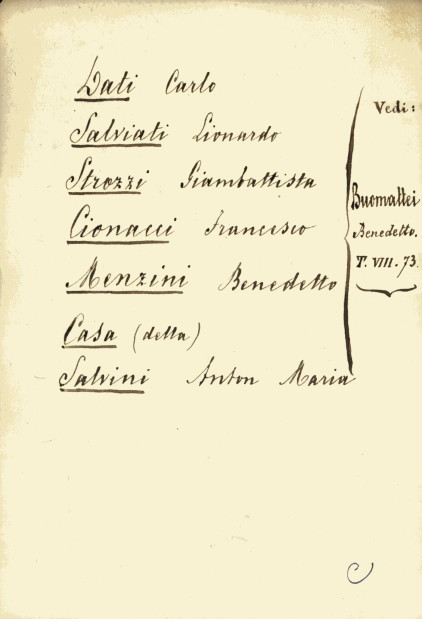 Dati Carlo
Salviati Lionardo
Strozzi Giambattista
Cionacci Francesco
Menzini Benedetto
Casa (della)
Salvini Anton Maria
Vedi:
Buomattei
Benedetto.
T. VIII. 73.